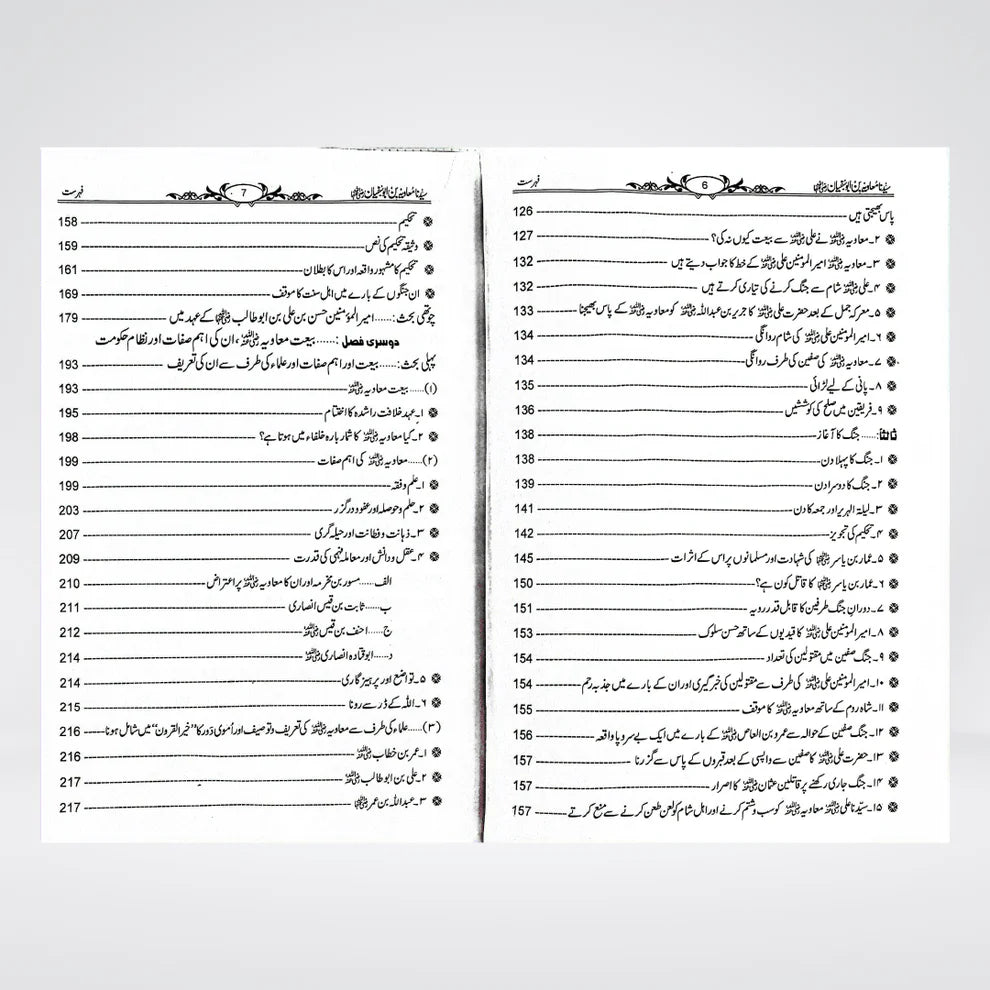 سیّدنا معاویہ بن ابوسفیان رضی اللہ عنہما 6 فہرست
پاس بھیجتی ہیں 126
۲۔ معاویہ رضی اللہ عنہ نے علی رضی اللہ عنہ سے بیعت کیوں نہ کی؟ 127
۳۔ معاویہ رضی اللہ عنہ امیر المؤمنین علی رضی اللہ عنہ کے خط کا جواب دیتے ہیں 132
۴۔ علی رضی اللہ عنہ شام سے جنگ کرنے کی تیاری کرتے ہیں 132
۵۔ معرکہ جمل کے بعد حضرت علی رضی اللہ عنہ کا جریر بن عبداللہ رضی اللہ عنہ کو معاویہ رضی اللہ عنہ کے پاس بھیجنا 133
۶۔ امیر المؤمنین علی رضی اللہ عنہ کی شام روانگی 134
۷۔ معاویہ رضی اللہ عنہ کی صفین کی طرف روانگی 134
۸۔ پانی کے لیے لڑائی 135
۹۔ فریقین میں صلح کی کوششیں 136
ثالثاً: ...... جنگ کا آغاز 138
۱۔ جنگ کا پہلا دن 138
۲۔ جنگ کا دوسرا دن 139
۳۔ لیلۃ الہریر اور جمعہ کا دن 141
۴۔ تحکیم کی تجویز 142
۵۔ عمار بن یاسر رضی اللہ عنہما کی شہادت اور مسلمانوں پر اس کے اثرات 145
۶۔ عمار بن یاسر رضی اللہ عنہما کا قاتل کون ہے؟ 150
۷۔ دورانِ جنگ طرفین کا قابل قدر رویہ 151
۸۔ امیر المؤمنین علی رضی اللہ عنہ کا قیدیوں کے ساتھ حسن سلوک 153
۹۔ جنگ صفین میں مقتولین کی تعداد 154
۱۰۔ امیر المؤمنین علی رضی اللہ عنہ کی طرف سے مقتولین کی خبر گیری اور ان کے بارے میں جذبہ رحم 154
۱۱۔ شاہ روم کے ساتھ معاویہ رضی اللہ عنہ کا موقف 155
۱۲۔ جنگ صفین کے حوالہ سے عمرو بن العاص رضی اللہ عنہ کے بارے میں ایک بے سروپا واقعہ 156
۱۳۔ حضرت علی رضی اللہ عنہ کا صفین سے واپسی کے بعد قبروں کے پاس سے گزرنا 157
۱۴۔ جنگ جاری رکھنے پر قاتلین عثمان رضی اللہ عنہ کا اصرار 157
۱۵۔ سیّدنا علی رضی اللہ عنہ معاویہ رضی اللہ عنہ کو سب و شتم کرنے اور اہل شام کو لعن طعن کرنے سے منع کرتے 157
سیّدنا معاویہ بن ابوسفیان رضی اللہ عنہما 7 فہرست
تحکیم 158
وثیقہ تحکیم کی نص 159
تحکیم کا مشہور واقعہ اور اس کا بطلان 161
ان جنگوں کے بارے میں اہل سنت کا موقف 169
چوتھی بحث: ...... امیر المؤمنین حسن بن علی بن ابو طالب رضی اللہ عنہما کے عہد میں 179
دوسری فصل: ...... بیعت معاویہ رضی اللہ عنہ، ان کی اہم صفات اور نظام حکومت
پہلی بحث: ...... بیعت اور اہم صفات اور علماء کی طرف سے ان کی تعریف 193
(۱) ...... بیعت معاویہ رضی اللہ عنہ 193
۱۔ عہد خلافت راشدہ کا اختتام 195
۲۔ کیا معاویہ رضی اللہ عنہ کا شمار بارہ خلفاء میں ہوتا ہے؟ 198
(۲) ...... معاویہ رضی اللہ عنہ کی اہم صفات 199
۱۔ علم و فقہ 199
۲۔ حلم و حوصلہ اور عفو و درگزر 203
۳۔ ذہانت و فطانت اور حیلہ گری 207
۴۔ عقل و دانش اور معاملہ فہمی کی قدرت 209
الف ...... مسور بن مخرمہ اور ان کا معاویہ رضی اللہ عنہ پر اعتراض 210
ب ...... ثابت بن قیس انصاری 211
ج ...... احنف بن قیس رضی اللہ عنہ 212
د ...... ابو قتادہ انصاری رضی اللہ عنہ 214
۵۔ تواضع اور پرہیزگاری 214
۶۔ اللہ کے ڈر سے رونا 215
(۳) ...... علماء کی طرف سے معاویہ رضی اللہ عنہ کی تعریف و توصیف اور اُموی دَور کا ”خیر القرون“ میں شامل ہونا 216
۱۔ عمر بن خطاب رضی اللہ عنہ 216
۲۔ علی بن ابو طالب رضی اللہ عنہ 217
۳۔ عبداللہ بن عمر رضی اللہ عنہما 217